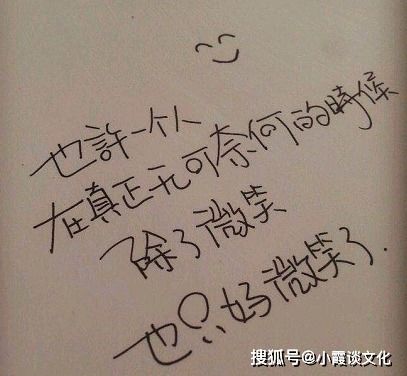 也許一个人
在真正无可奈何的時候
除了微笑
也只好微笑了.
搜狐号@小霞谈文化